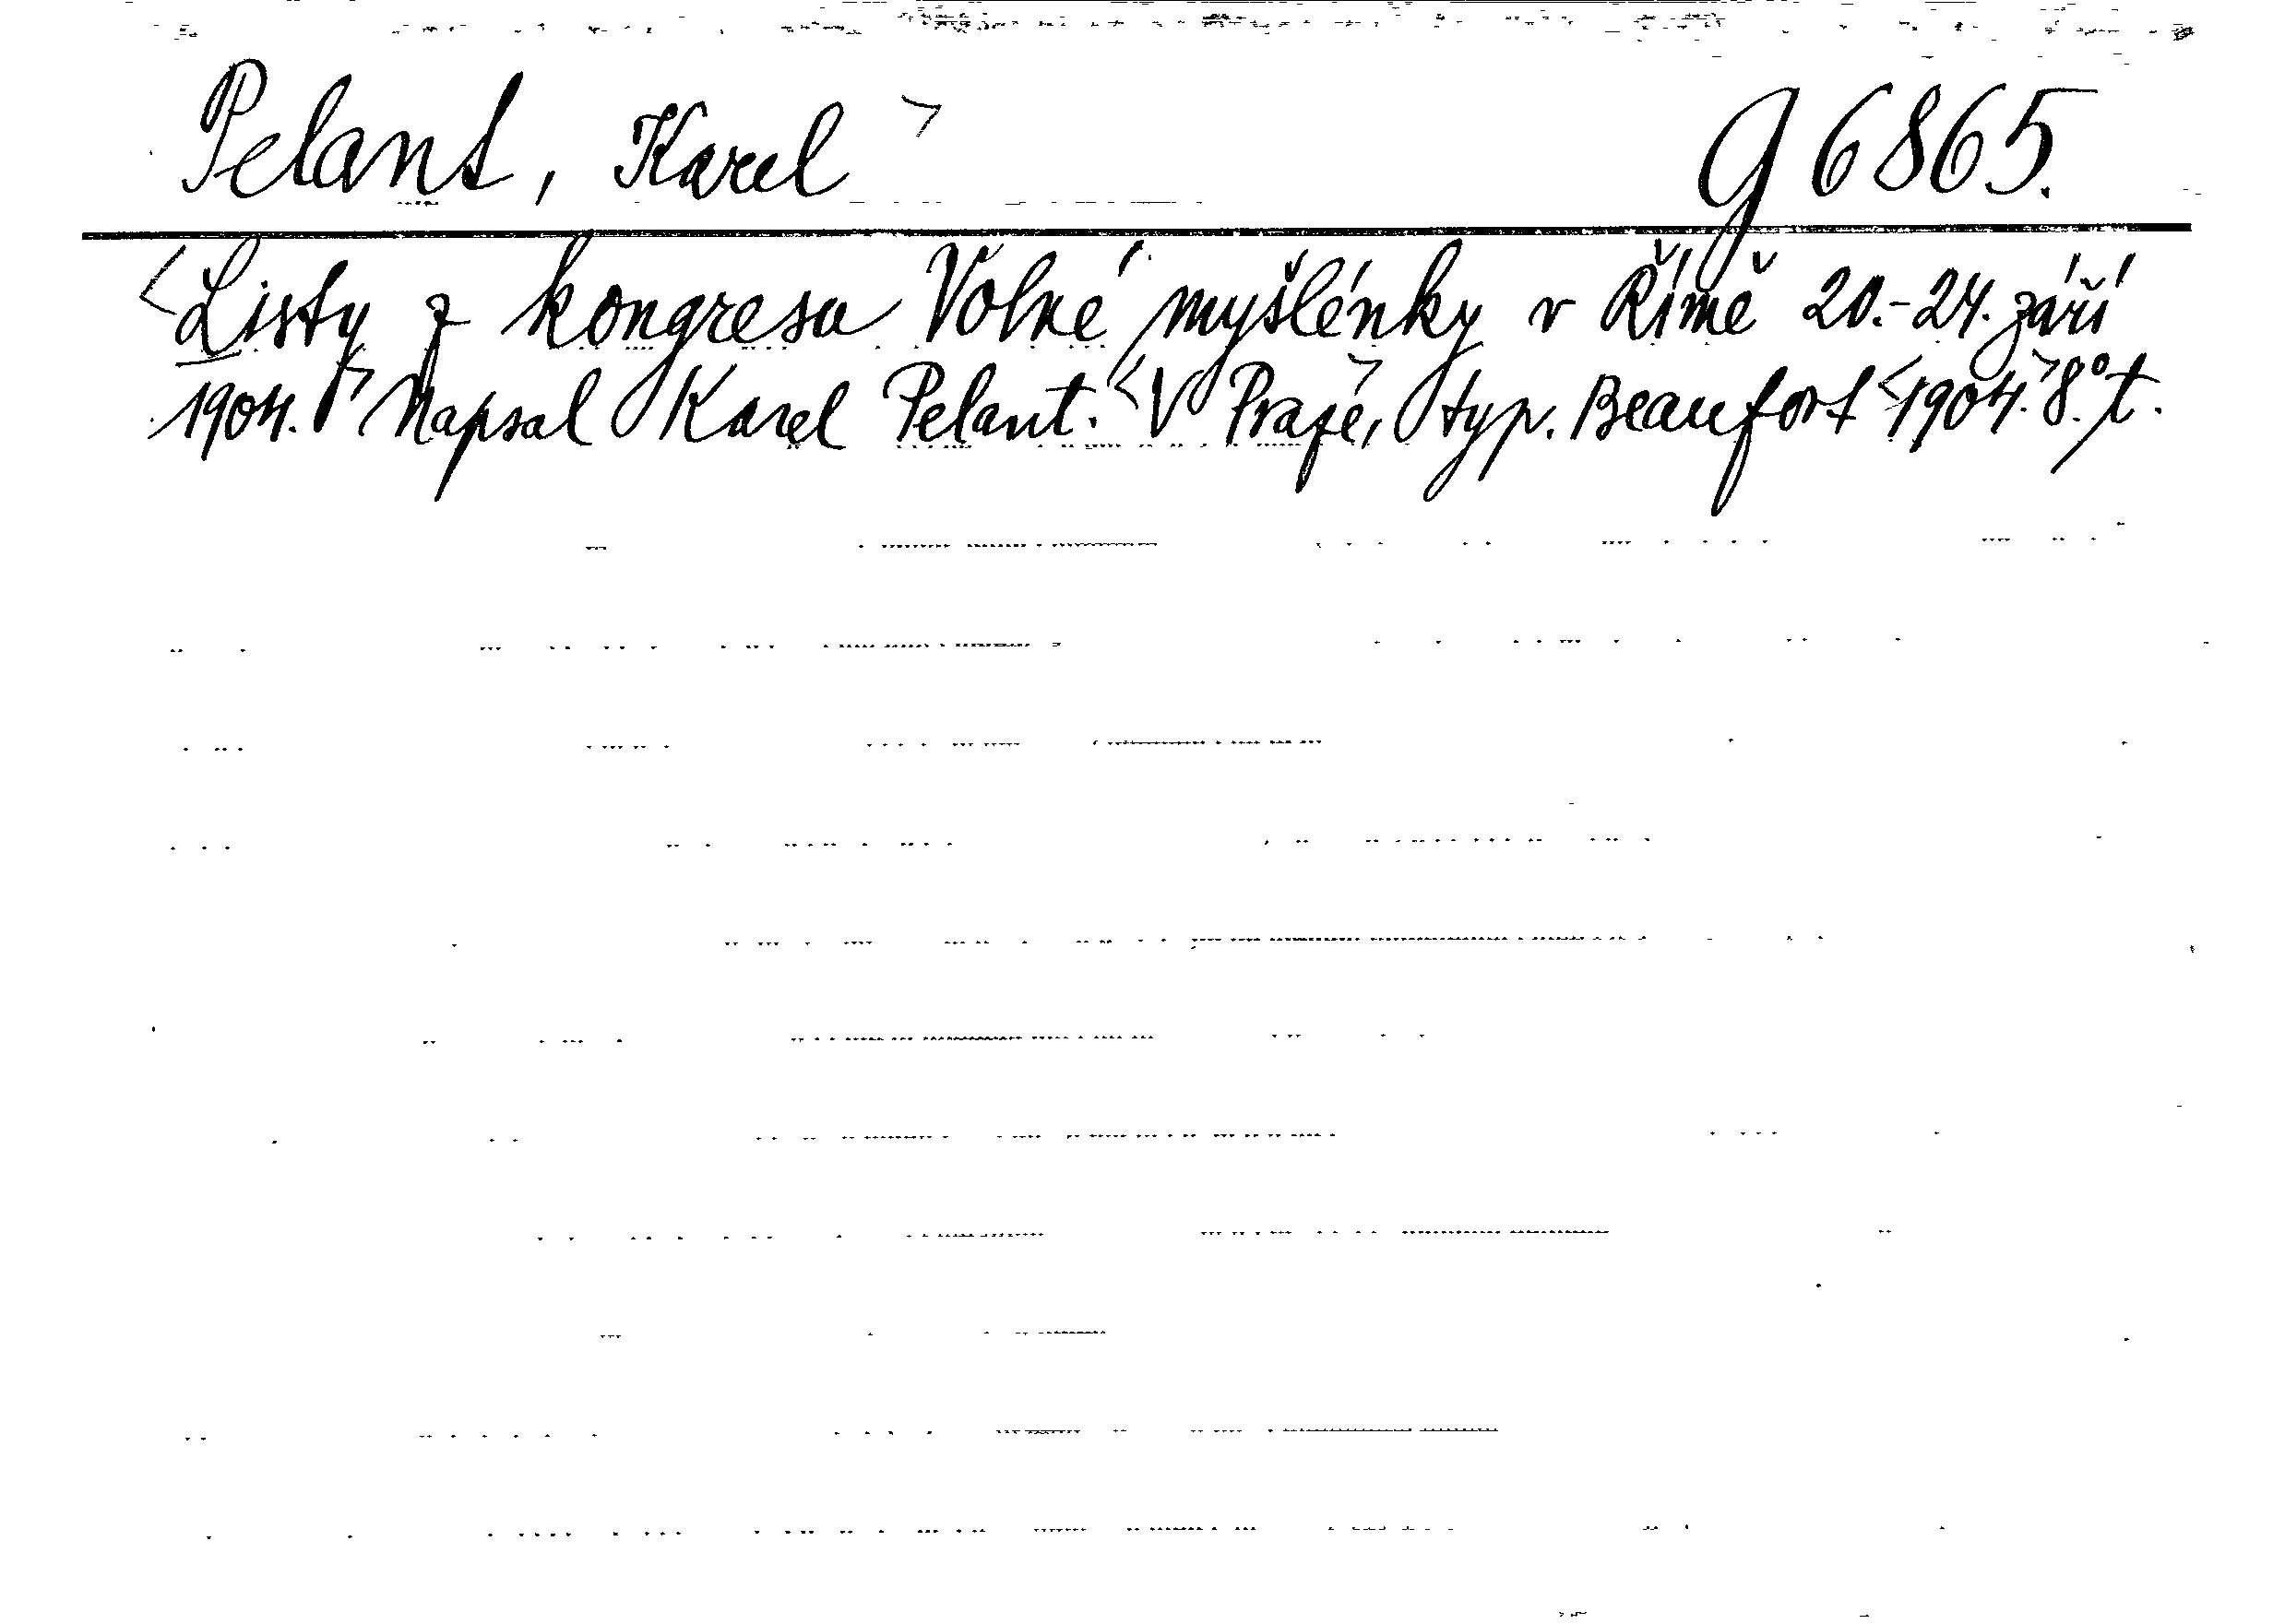 Pelant, Karel > g 6865.
<Listy z kongresu Volné myšlénky v Římě 20.-24. září
1904.> Napsal Karel Pelant. <V Praze,> typ. Beaufort <1904.> 8° t.